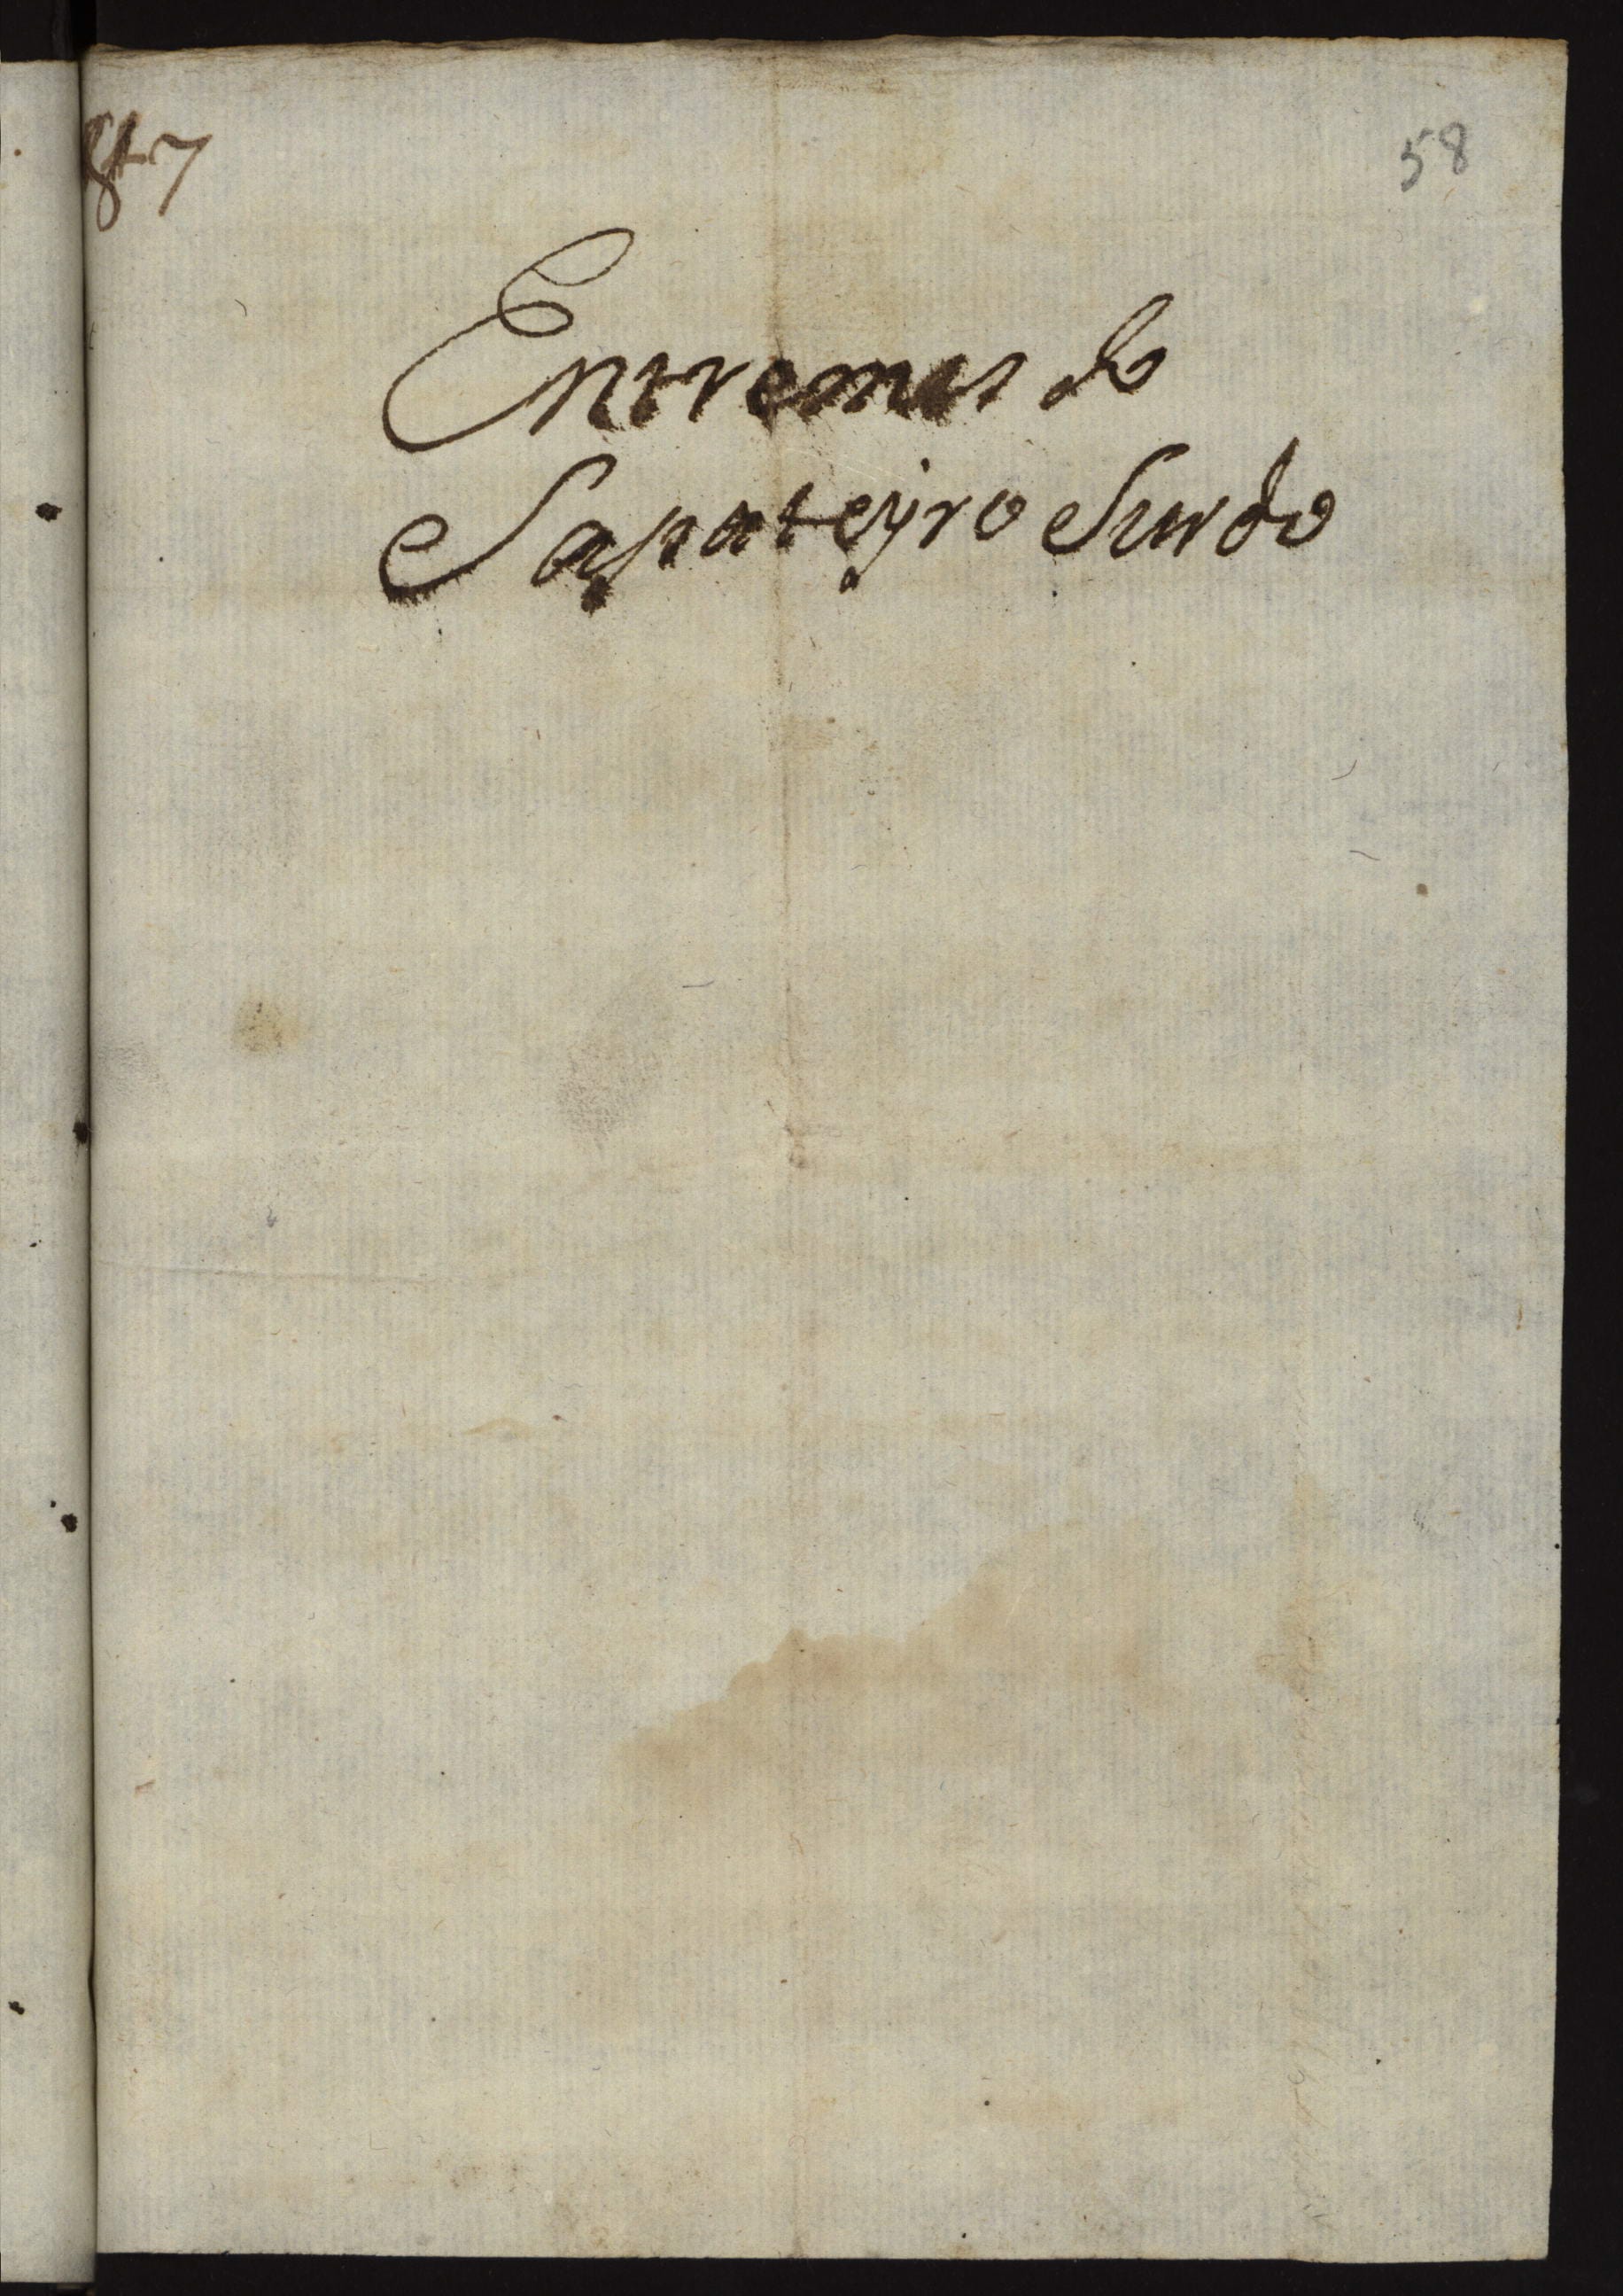 58
Entremes do
Sapateyro Surdo